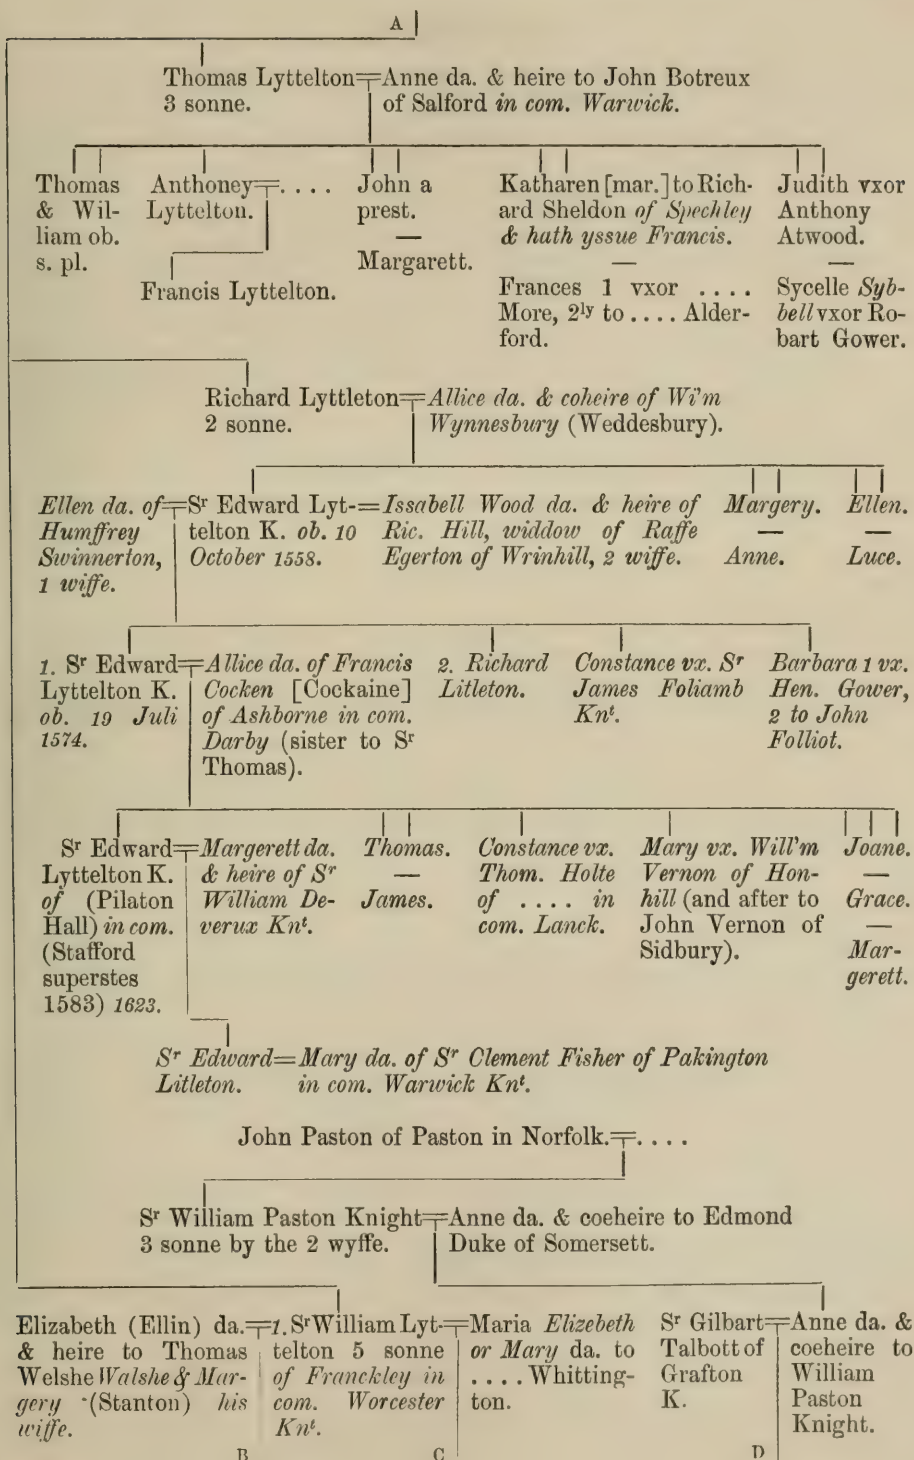 A
Thomas Lyttelton=Anne da. & heire to John Botreux
3 sonne. of Salford in com. Warwick.
Thomas & Wil-
liam ob.
s. pl.
Anthoney=. . . .
Lyttelton.
Francis Lyttelton.
John a
prest.
—
Margarett.
Katharen [mar.] to Rich-
ard Sheldon of Spechley
& hath yssue Francis.
—
Frances 1 vxor . . . .
More, 2ly to . . . . Alder-
ford.
Judith vxor
Anthony
Atwood.
—
Sycelle Syb-
bell vxor Ro-
bart Gower.
Richard Lyttleton=Allice da. & coheire of Wi'm
2 sonne. Wynnesbury (Weddesbury).
Ellen da. of=
Humffrey
Swinnerton,
1 wiffe.
Sr Edward Lyt-=
telton K. ob. 10
October 1558.
Issabell Wood da. & heire of
Ric. Hill, widdow of Raffe
Egerton of Wrinhill, 2 wiffe.
Margery.
—
Anne.
Ellen.
—
Luce.
1. Sr Edward=
Lyttelton K.
ob. 19 Juli
1574.
Allice da. of Francis
Cocken [Cockaine]
of Ashborne in com.
Darby (sister to Sr
Thomas).
2. Richard
Litleton.
Constance vx. Sr
James Foliamb
Knt.
Barbara 1 vx.
Hen. Gower,
2 to John
Folliot.
Sr Edward=
Lyttelton K.
of (Pilaton
Hall) in com.
(Stafford
superstes
1583) 1623.
Margerett da.
& heire of Sr
William De-
verux Knt.
Thomas.
—
James.
Constance vx.
Thom. Holte
of . . . . in
com. Lanck.
Mary vx. Will'm
Vernon of Hon-
hill (and after to
John Vernon of
Sidbury).
Joane.
—
Grace.
—
Mar-
gerett.
Sr Edward=Mary da. of Sr Clement Fisher of Pakington
Litleton. in com. Warwick Knt.
John Paston of Paston in Norfolk.=. . . .
Sr William Paston Knight=Anne da. & coeheire to Edmond
3 sonne by the 2 wyffe. Duke of Somersett.
Elizabeth (Ellin) da.=
& heire to Thomas
Welshe Walshe & Mar-
gery (Stanton) his
wiffe.
1. Sr William Lyt-=
telton 5 sonne
of Franckley in
com. Worcester
Knt.
Maria Elizebeth
or Mary da. to
. . . . Whitting-
ton.
Sr Gilbart=
Talbott of
Grafton
K.
Anne da. &
coeheire to
William
Paston
Knight.
B C D